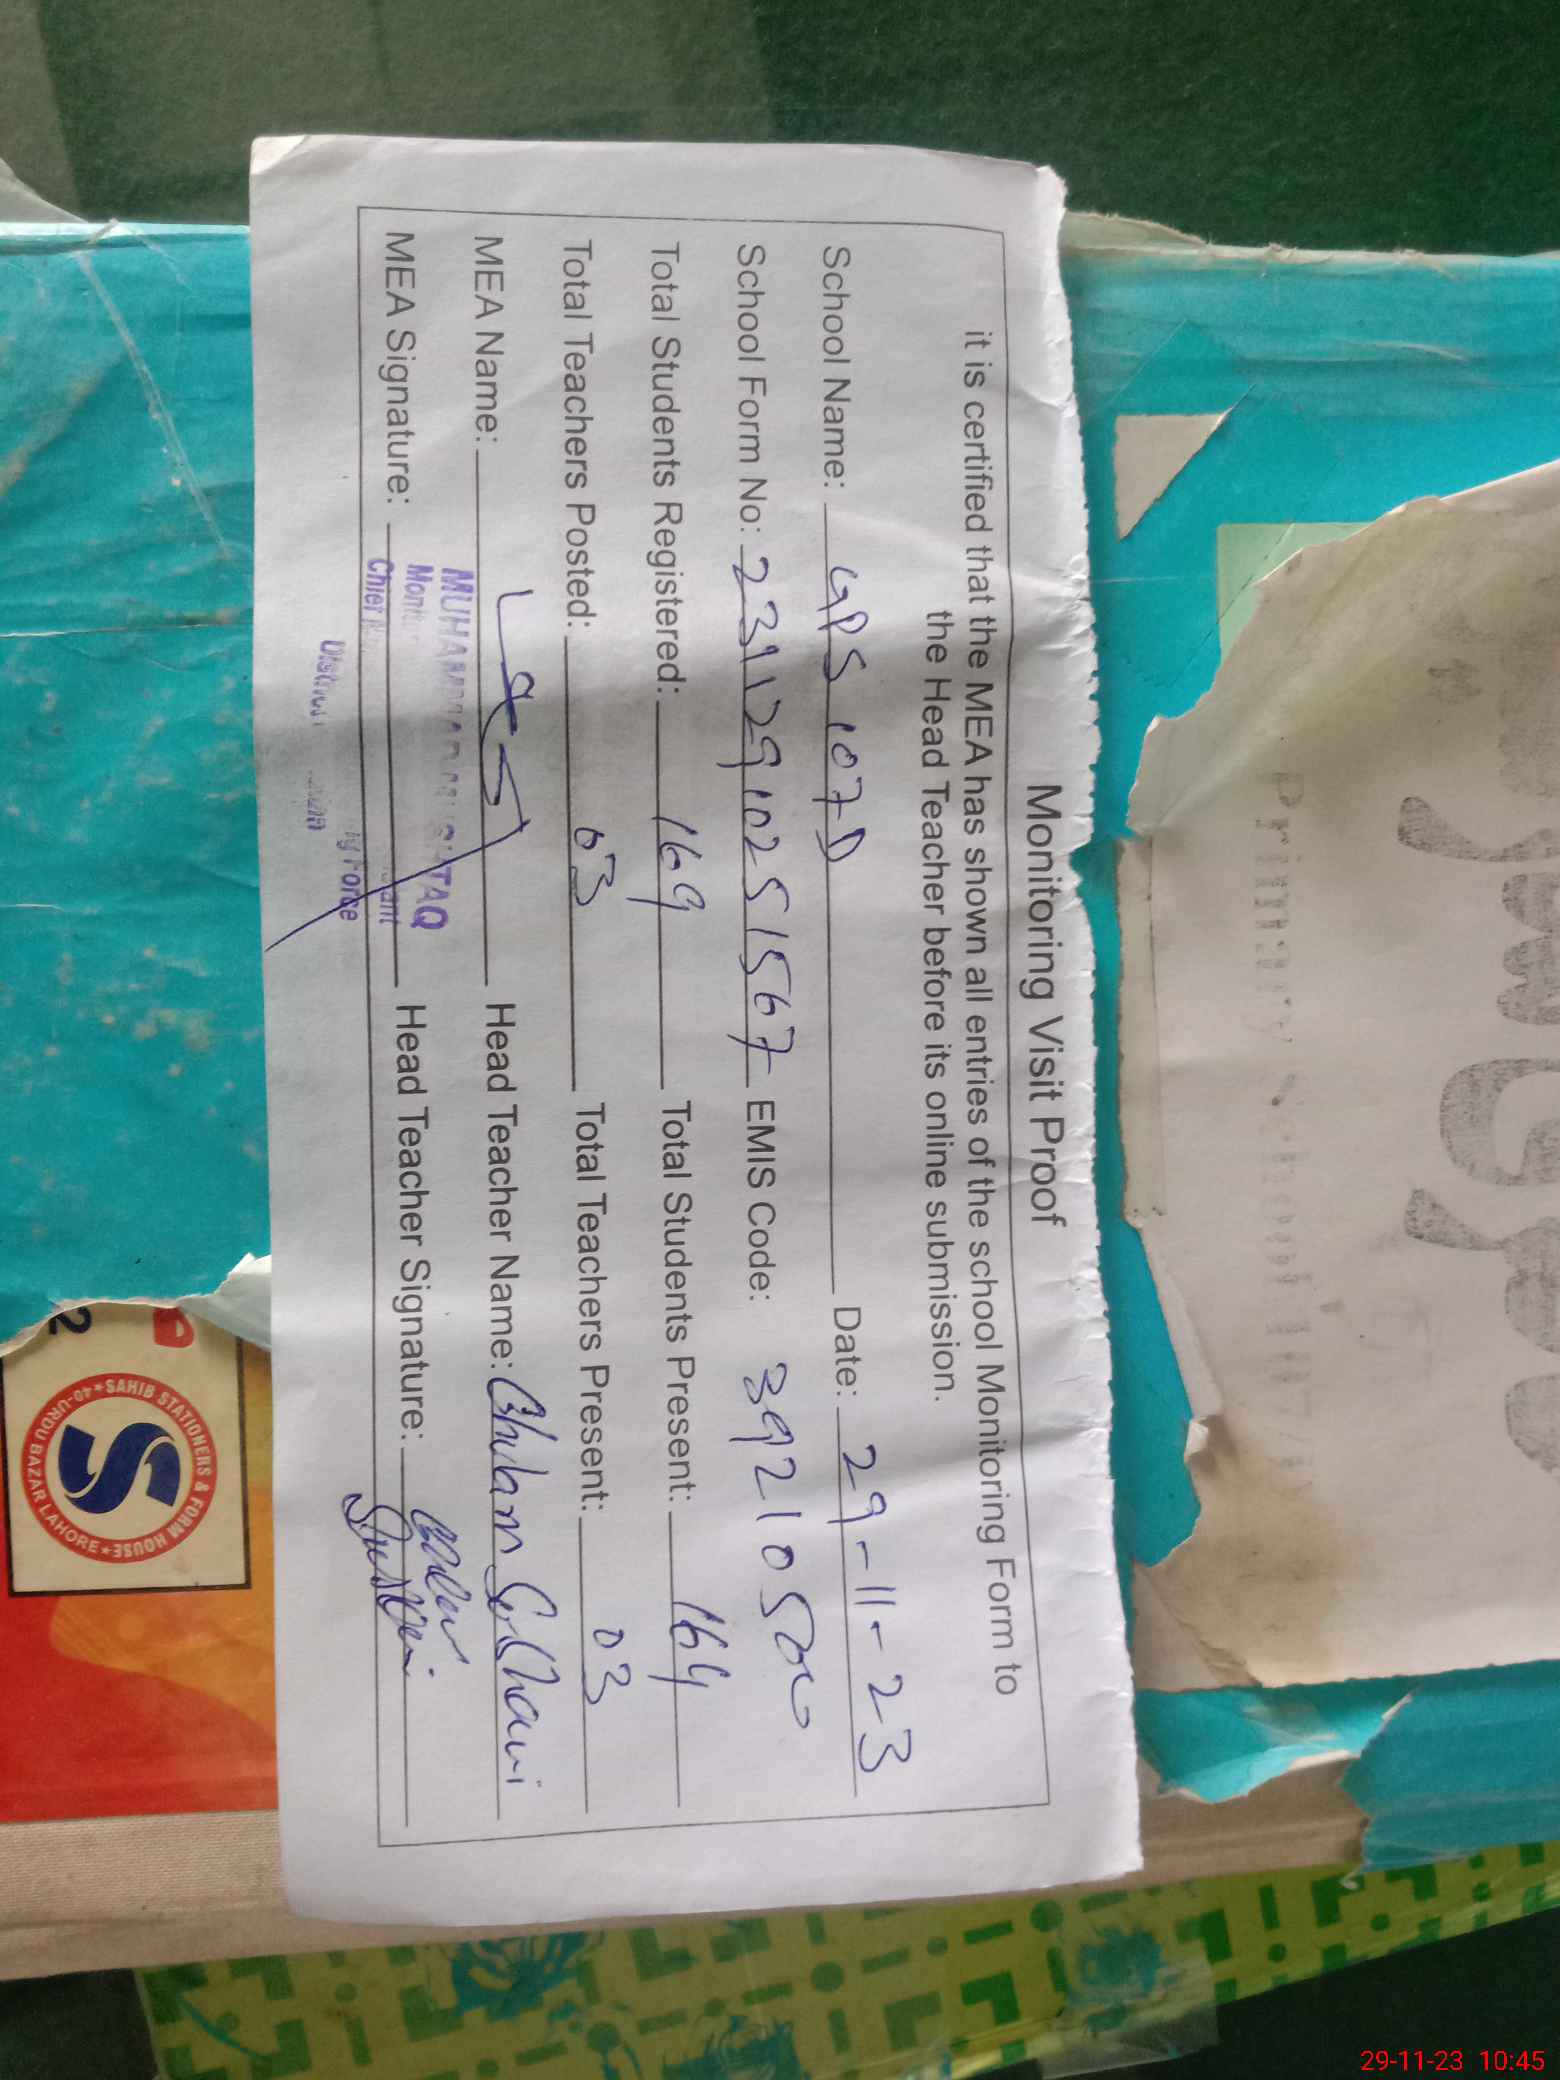 Monitoring Visit Proof
it is certified that the MEA has shown all entries of the school Monitoring Form to
the Head Teacher before its online submission.
School Name: GPS 107D Date: 29-11-23
School Form No: 23112910251567 EMIS Code: 39210500
Total Students Registered: 169 Total Students Present: 164
Total Teachers Posted: 03 Total Teachers Present: 03
MEA Name: Head Teacher Name: Ghulam Ghani
MEA Signature: Head Teacher Signature:
Primary School 107
SAHIB STATIONERS & FORM HOUSE
40-URDU BAZAR LAHORE
2
29-11-23 10:45